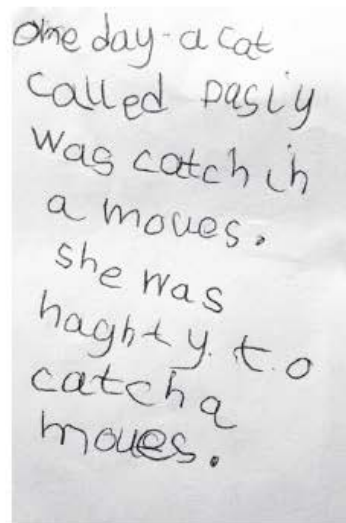 one day - a cat
called pasiy
was catch ih
a moues.
she was
haghty. t.o
catch a
moues.